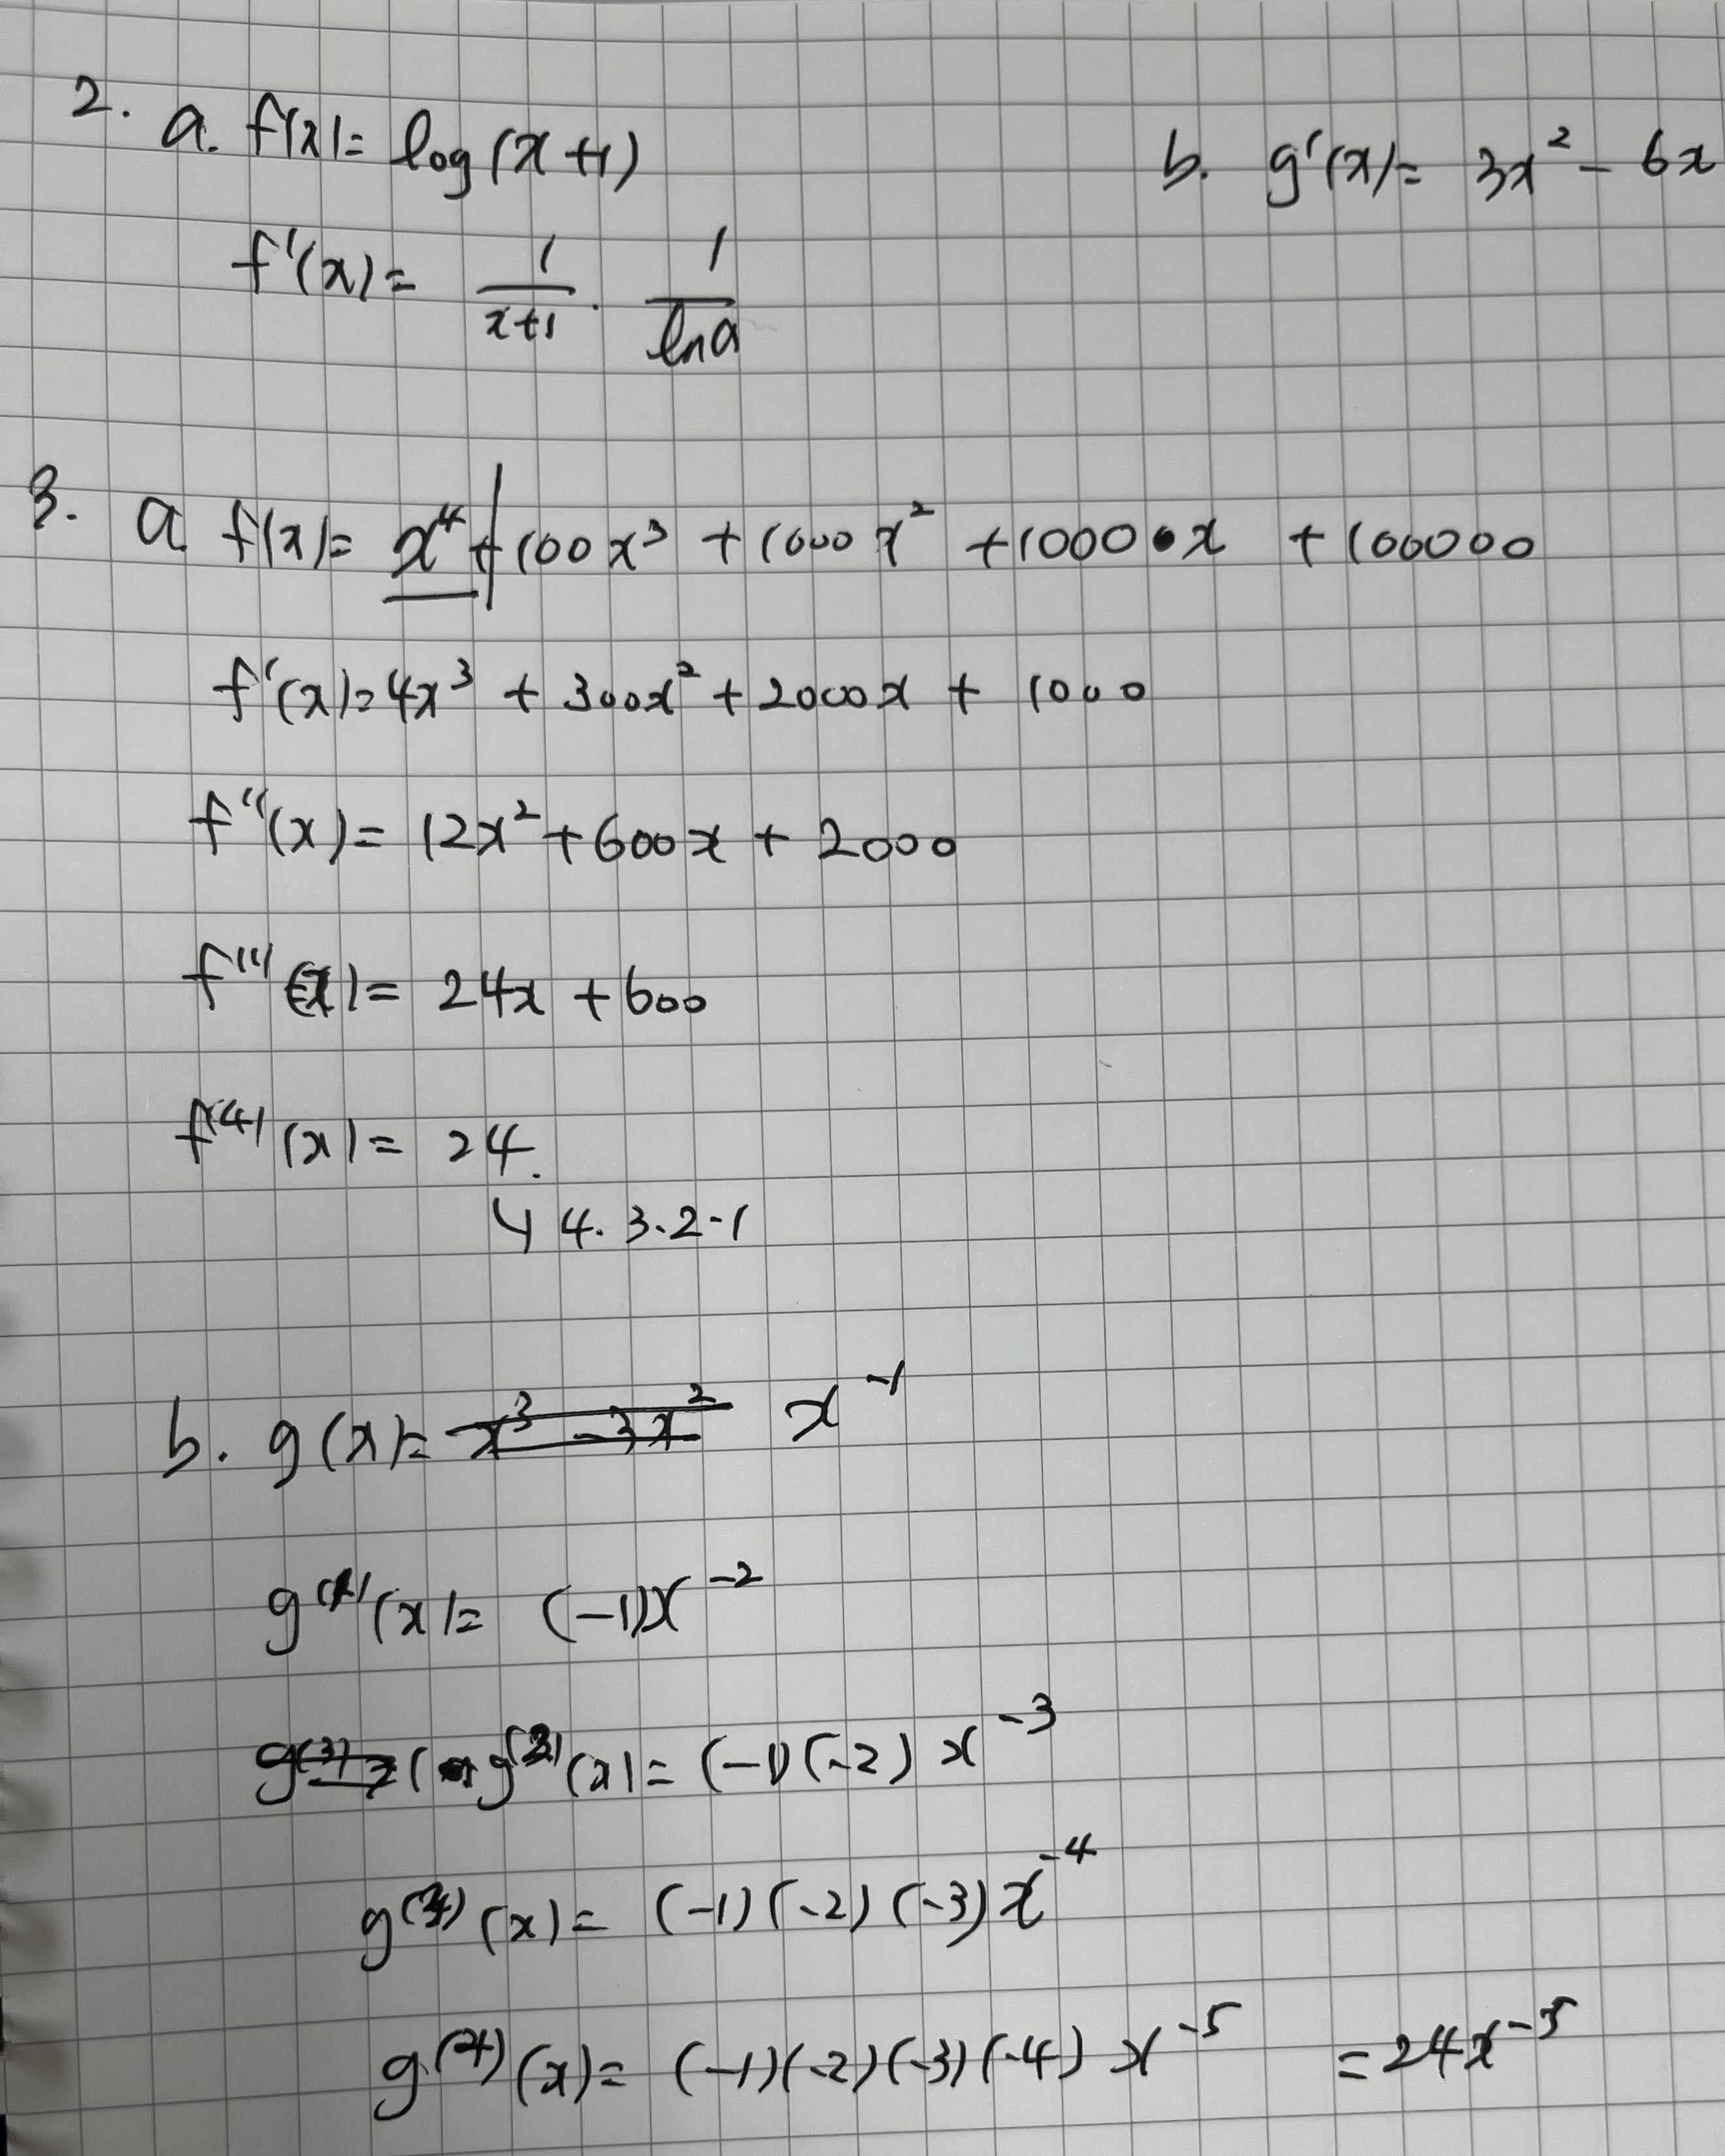 2. a. f(x)= log(x+1)
b. g'(x)= 3x² - 6x
f'(x)= 1/(x+1) · 1/(ln a)
3. a f(x)= x⁴ + 100x³ + 1000x² + 10000x + 100000
f'(x)= 4x³ + 300x² + 2000x + 1000
f''(x)= 12x² + 600x + 2000
f'''(x)= 24x + 600
f⁽⁴⁾(x)= 24.
↳ 4.3.2.1
b. g(x)= x³ - 3x² x⁻¹
g⁽¹⁾(x)= (-1)x⁻²
g⁽³⁾ g⁽²⁾(x)= (-1)(-2)x⁻³
g⁽³⁾(x)= (-1)(-2)(-3)x⁻⁴
g⁽⁴⁾(x)= (-1)(-2)(-3)(-4)x⁻⁵ = 24x⁻⁵